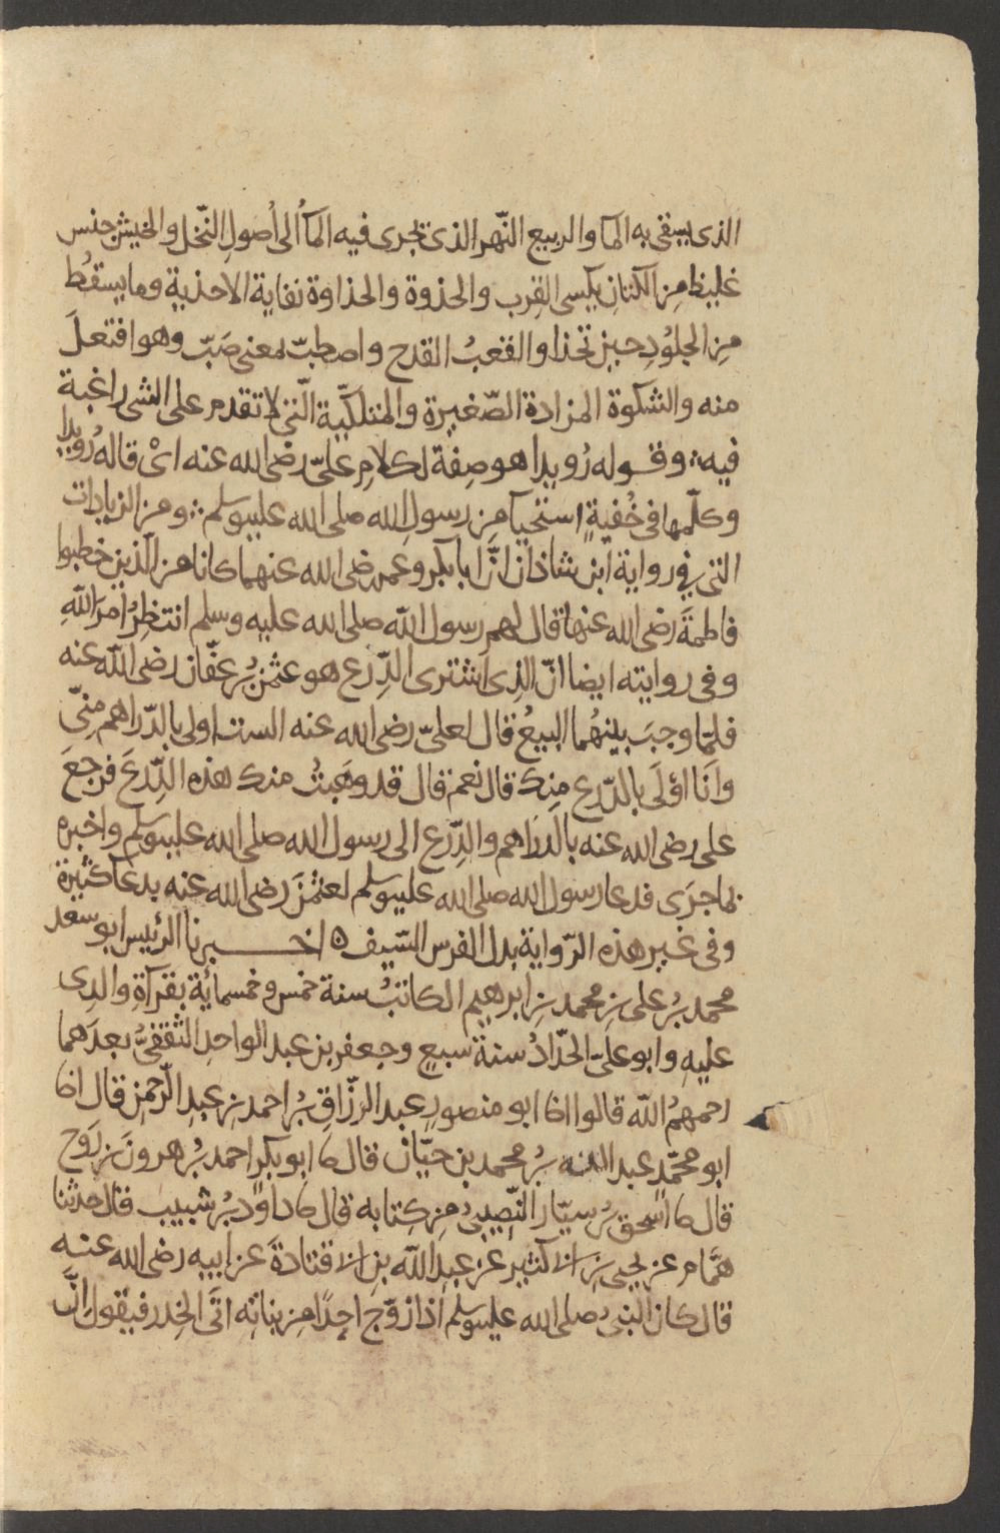 الذى يسقى به الماء والربيع النّهر الذى تجرى فيه المآء الى أصول النّخل والخيش جنس
غليظ من الكتان يكسى القرب والحذوة والحذاوة نفاية الاحذية وما يسقُط
مِن الجلوُدِ حين تحذا والقعبُ القدح واصطبّ بمعنى صَبّ وهو افتعلَ
منه والشكوة المزادة الصّغيرة والمتلكّية الّتى لا تقدم على الشى راغبة
فيه ۞ وقوله رُويدا هو صِفة لكلامِ علىّ رضى الله عنه اىْ قاله رُويدا
وكلّمها فى خُفيةٍ استحيآ مِن رسولِ الله صلى الله عليه وسلم ۞ ومن الزيادات
التى فى رواية ابن شاذان انَّ ابا بكر وعمر رضى الله عنهما كانا من الّذين خطبوا
فاطمةَ رضى الله عنها قال لهم رسول الله صلى الله عليه وسلم انتظِرُ امرَ اللهِ
وفى روايته ايضا انّ الذِى اشترى الدِّرع هو عثمنُ بُن عفّان رضى الله عنه
فلمّا وجبَ بينهُما البيعُ قال لعلىّ رضى الله عنه الست اولى بالدّراهم منِّى
وانَا اوْلَى بالدّرع مِنك قال نعم قال قد وهَبتُ منك هذه الدِّرعَ فرجعَ
على رضى الله عنه بالدرَاهم والدِّرع الى رسول الله صلى الله عليه وسلم واخبره
بما جرَى فدعا رسول الله صلى الله عليه وسلم لعثمٰنَ رضى الله عنه بدعآ كثيرة
وفى غير هذه الرّواية بدل الفرس السّيف ٥ اخـــبرنا الرئيس ابو سعد
محمد بُن على بن محمد بن ابرهيم الكاتبُ سنة خمس وخمسمائة بقرآة والدِى
عليهِ وابو علىّ الحدّادُ سنة سبعٍ وجعفر بن عبد الواحِد الثقفىُّ بعدَهما
رحمهمُ الله قالوا انا ابو منصورٍ عبد الرزّاقِ بُن احمد بن عبدِ الرّحمٰن قال انا
ابو محمّدٍ عبد الله بُن محمد بن حيّان قال نا ابو بكرٍ احمد بُن هرونَ بن رَوح
قال نا اسٰحق بُن سيّار النّصِيبىُ مِن كِتابه قال نا داوُد بُن شبيب قال حدثنا
همَّام عن يحيى بن ابى كثير عن عبدِ الله بن ابى قتادةَ عن ابيه رضى الله عنه
قال كان النبىُ صلى الله عليه وسلم اذا زوّج احِدًا مِن بناتِه اتَى الخِدر فيقول انَّ